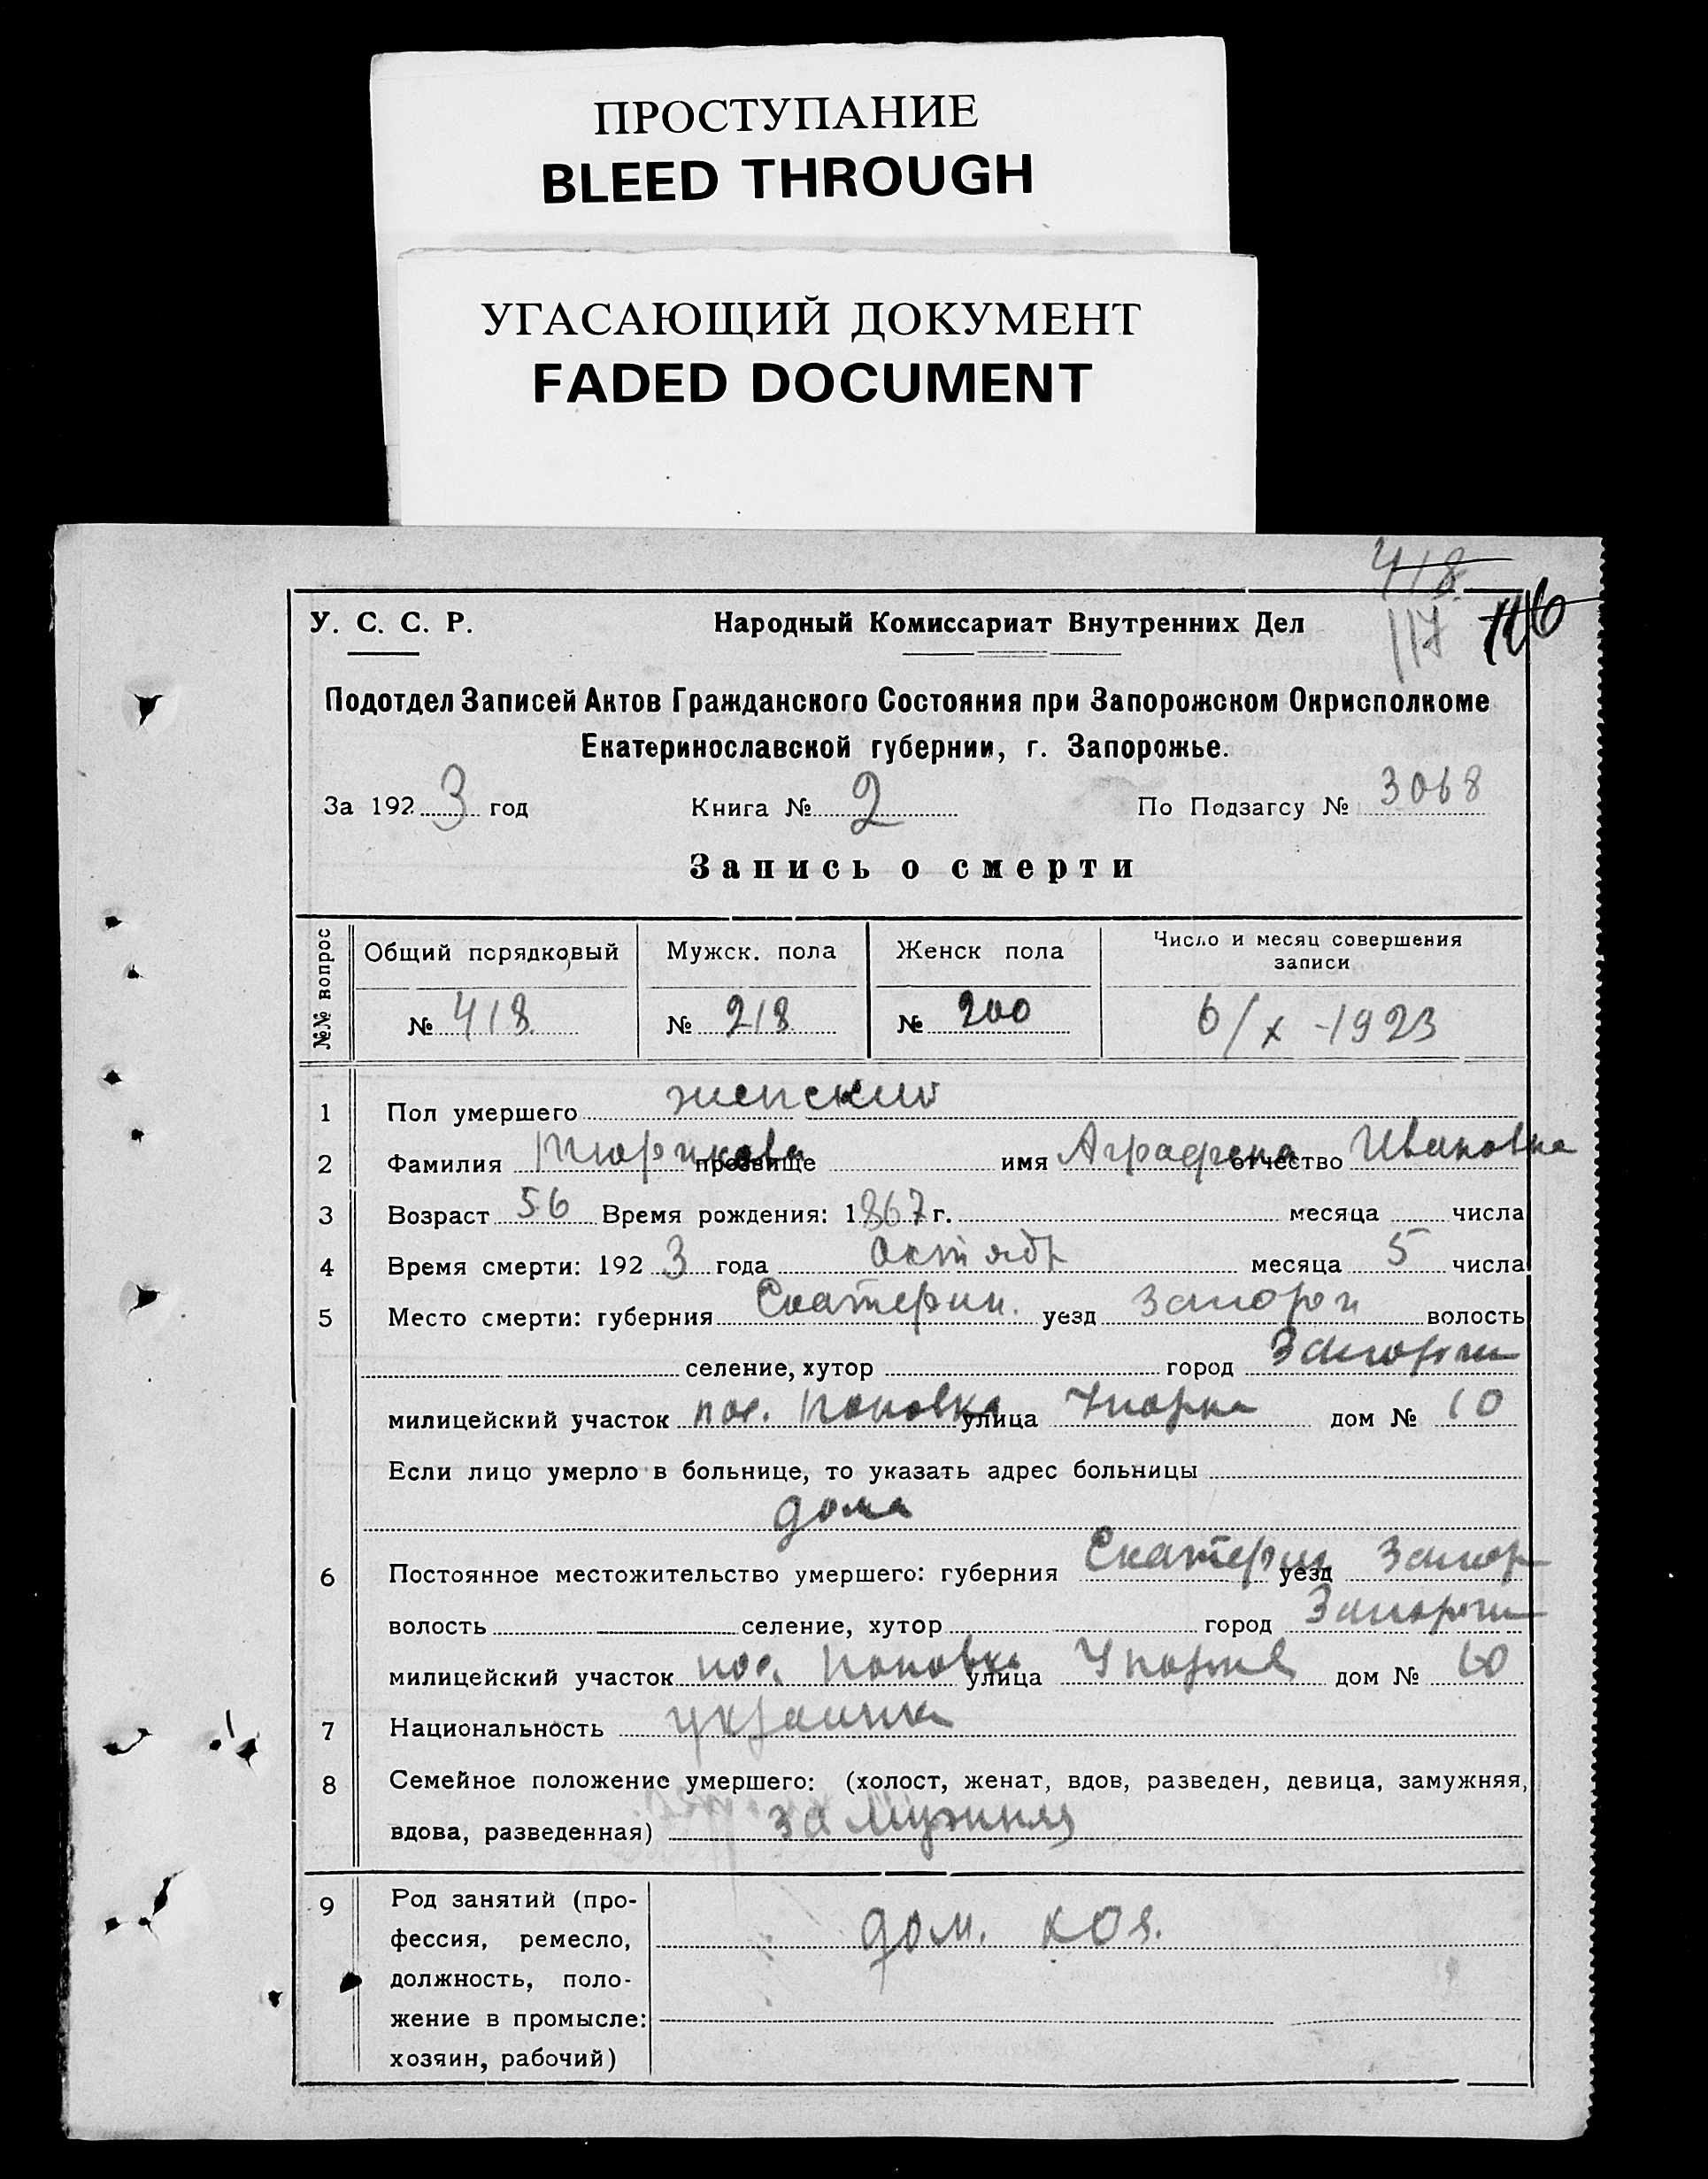 ПРОСТУПАНИЕ
BLEED THROUGH
УГАСАЮЩИЙ ДОКУМЕНТ
FADED DOCUMENT
418
117 116
У. С. С. Р. Народный Комиссариат Внутренних Дел
Подотдел Записей Актов Гражданского Состояния при Запорожском Окрисполкоме
Екатеринославской губернии, г. Запорожье.
За 1923 год Книга № 2 По Подзагсу № 3068
Запись о смерти
№№ вопрос Общий порядковый Мужск. пола Женск пола Число и месяц совершения
записи
№ 418 № 218 № 200 6/X -1923
1 Пол умершего женский
2 Фамилия прозвище имя Аграфена отчество Ивановна
3 Возраст 56 Время рождения: 1867 г. месяца числа
4 Время смерти: 1923 года Октябр месяца 5 числа
5 Место смерти: губерния Екатерин. уезд Запорож волость
селение, хутор город Запорож
милицейский участок пос. улица дом № 10
Если лицо умерло в больнице, то указать адрес больницы
дома
6 Постоянное местожительство умершего: губерния Екатерин уезд Запор
волость селение, хутор город Запорож
милицейский участок пос. улица дом № 10
7 Национальность украинка
8 Семейное положение умершего: (холост, женат, вдов, разведен, девица, замужняя,
вдова, разведенная) замужняя
9 Род занятий (про-
фессия, ремесло, дом. хоз.
должность, поло-
жение в промысле:
хозяин, рабочий)